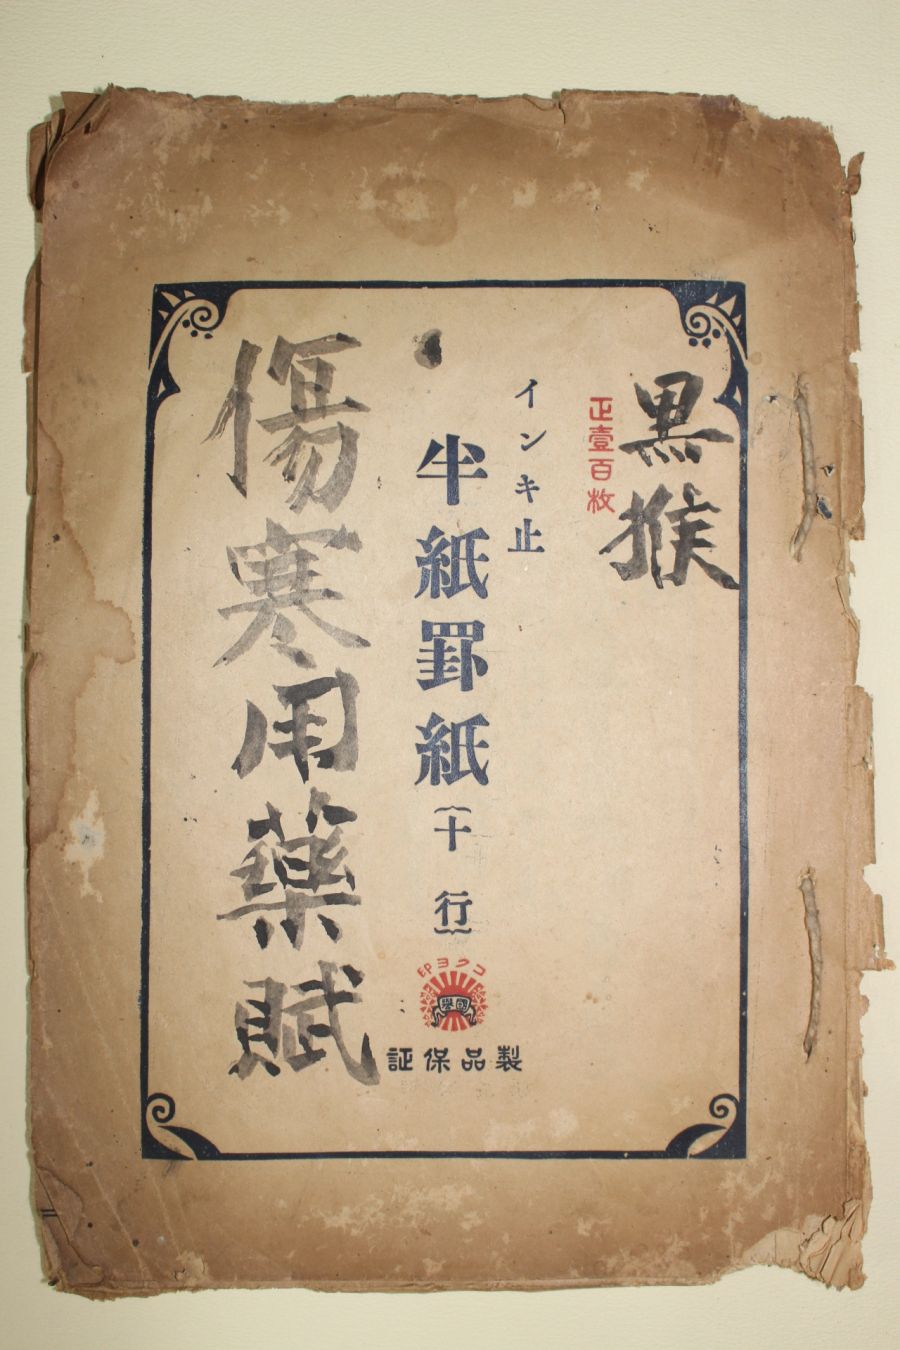 黒猴
正壹百枚
インキ止
半紙罫紙
(十行)
印ヨクコ
國誉
証保品製
傷寒用藥賦